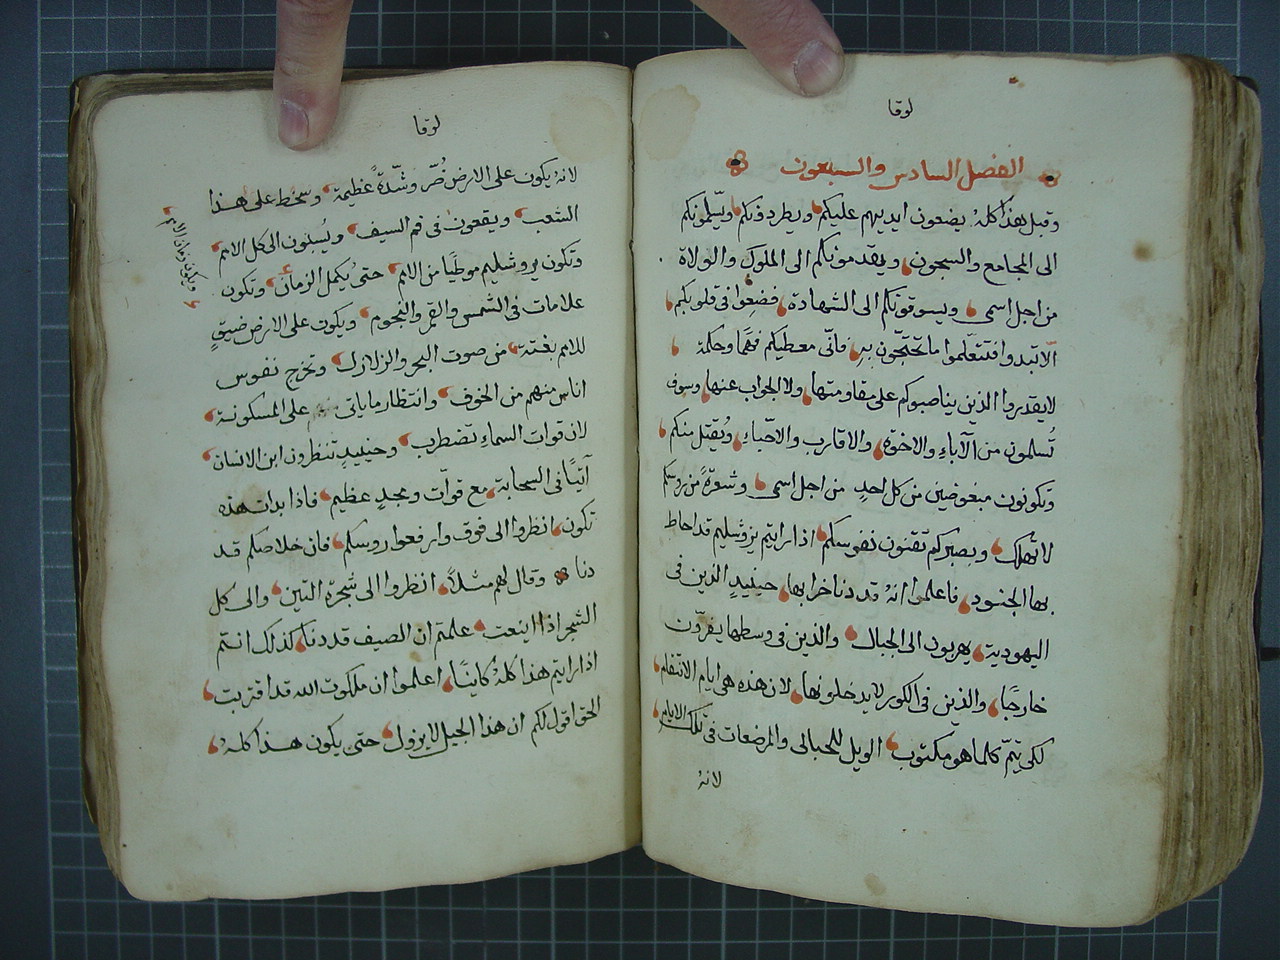 لوقا
الفصل السادس والسبعون
وقبل هذا كله يضعون ايديهم عليكم ويطردونكم ويسلمونكم
الى المجامع والسجون ويقدمونكم الى الملوك والولاة
من اجل اسمى ويسوقونكم الى الشهادة فضعوا فى قلوبكم
الّا تبدوا فتتعلموا ما تحتجّون به فانّى معطيكم فهمًا وحكمة
لا يقدروا الذين يناصبوكم على مقاومتها ولا الجواب عنها وسوف
تُسلمون من الآباء والاخوة والاقارب والاحبّاء ويُقتل منكم
وتكونون مبغوضين من كل احدٍ من اجل اسمى وشعرةً من روسكم
لا تهلك وبصبركم تقتنون نفوسكم اذا رايتم يروشليم قد احاط
بها الجنود فاعلموا انهُ قد دنا خرابها حينيدٍ الذين فى
اليهودية يهربون الى الجبال والذين فى وسطها يفرّون
خارجًا والذين فى الكور لا يدخلونها لان هذه هى ايام الانتقام
لكى يتمّ كلما هو مكتوب الويل للحبالى والمرضعات فى تلك الايام
لانهُ
لوقا
لانهُ يكون على الارض ضُرّ وشدّةً عظيمة وسخط على هذا
الشعب ويقعون فى فم السيف ويُسبَون الى كل الامم
وتكون يروشليم موطيًا من الامم حتى يُكمل الزمان وتكون
علامات فى الشمس والقمر والنجوم ويكون على الارض ضيقٍ
للامم بغتة من صوت البحر والزلازل وتخرج نفوس
اناس منهم من الخوف وانتظار ما ياتى على المسكونة
لان قوات السماء تضطرب وحينيدٍ تنظرون ابن الانسان
آتيًا فى السحابة مع قوّات ومجدٍ عظيم فاذا بدات هذه
تكون انظروا الى فوق وارفعوا روسكم فان خلاصكم قد
دنا وقال لهم مثلاً انظروا الى شجرة التين والى كل
الشجر اذا اينعت علمتم ان الصيف قد دنا كذلك انتم
اذا رايتم هذا كلهُ كاينًا اعلموا ان ملكوت الله قد اقتربت
الحق اقول لكم ان هذا الجيل لا يزول حتى يكون هذا كلهُ